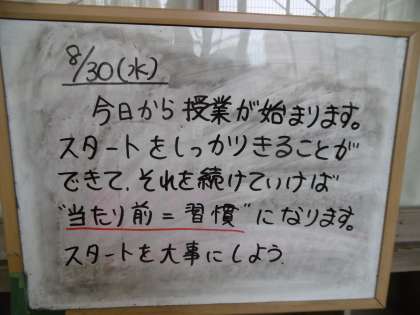 8/30(水)
今日から授業が始まります。
スタートをしっかりきることが
できて、それを続けていけば
"当たり前=習慣"になります。
スタートを大事にしよう.